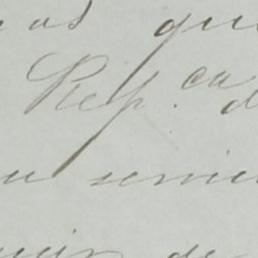 as que
Rep.ca d
u servic
de